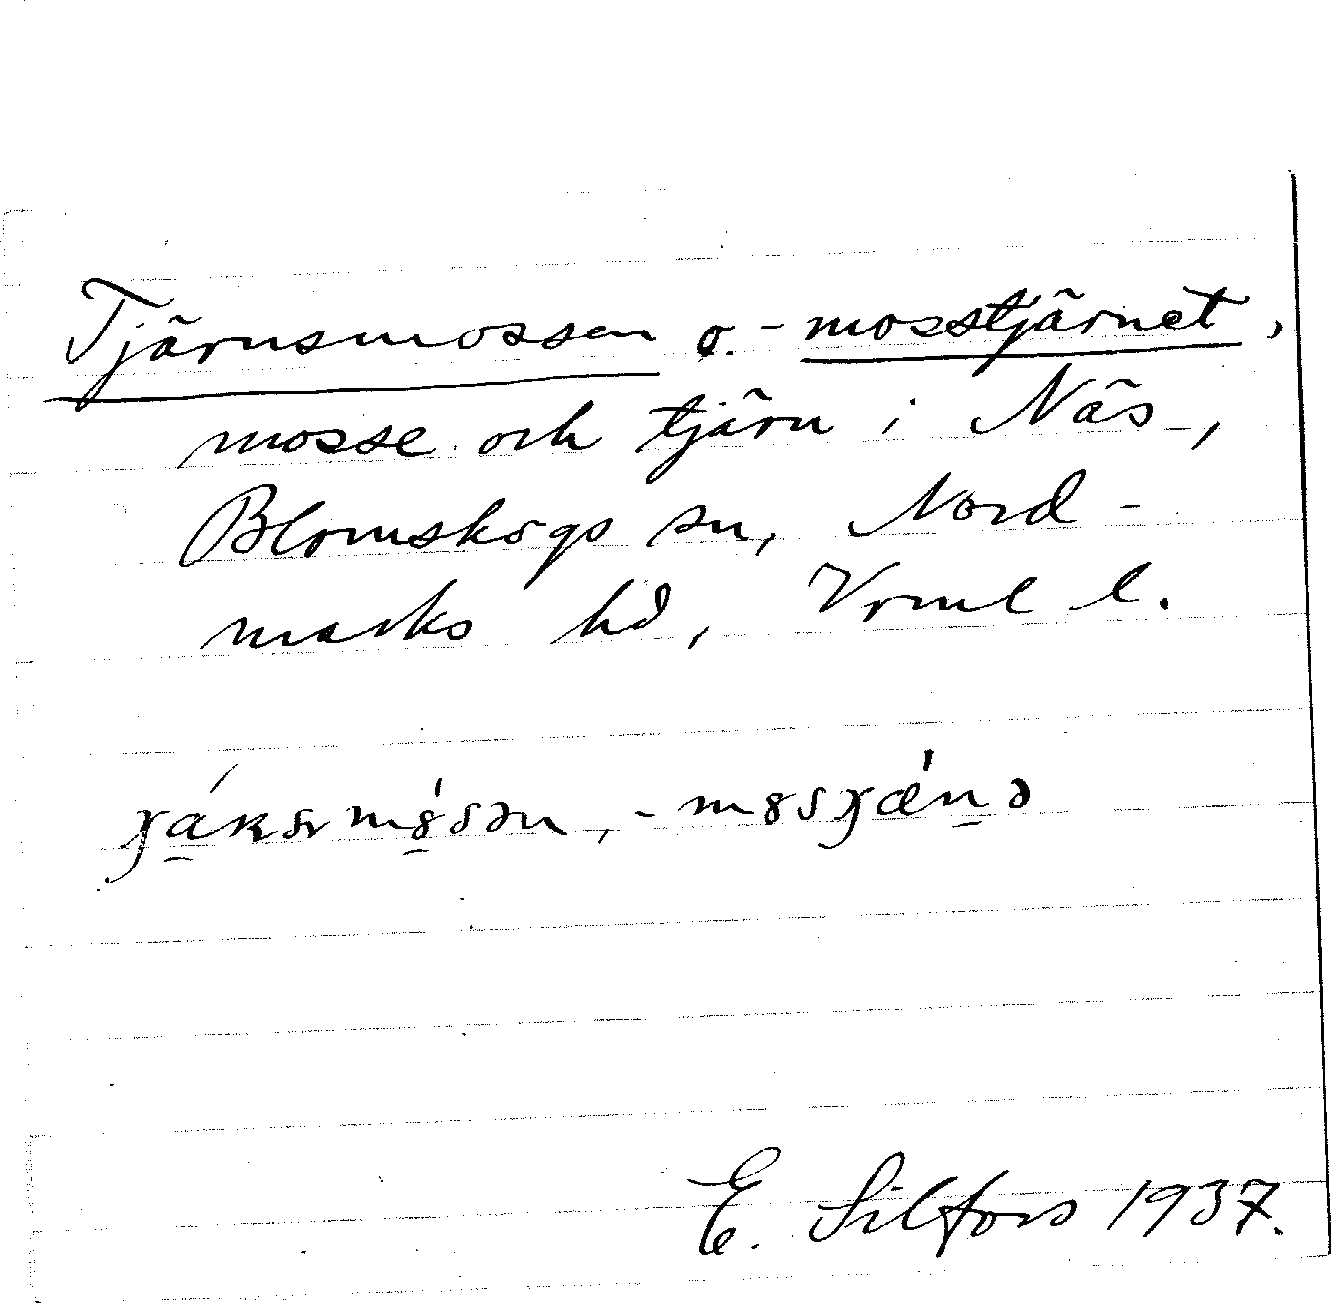 Tjärnsmossen o. - mosstjärnet,
mosse och tjärn i Näs -,
Blomskogs sn, Nord -
marks hd, Vrml l.
E. Silfors 1937.